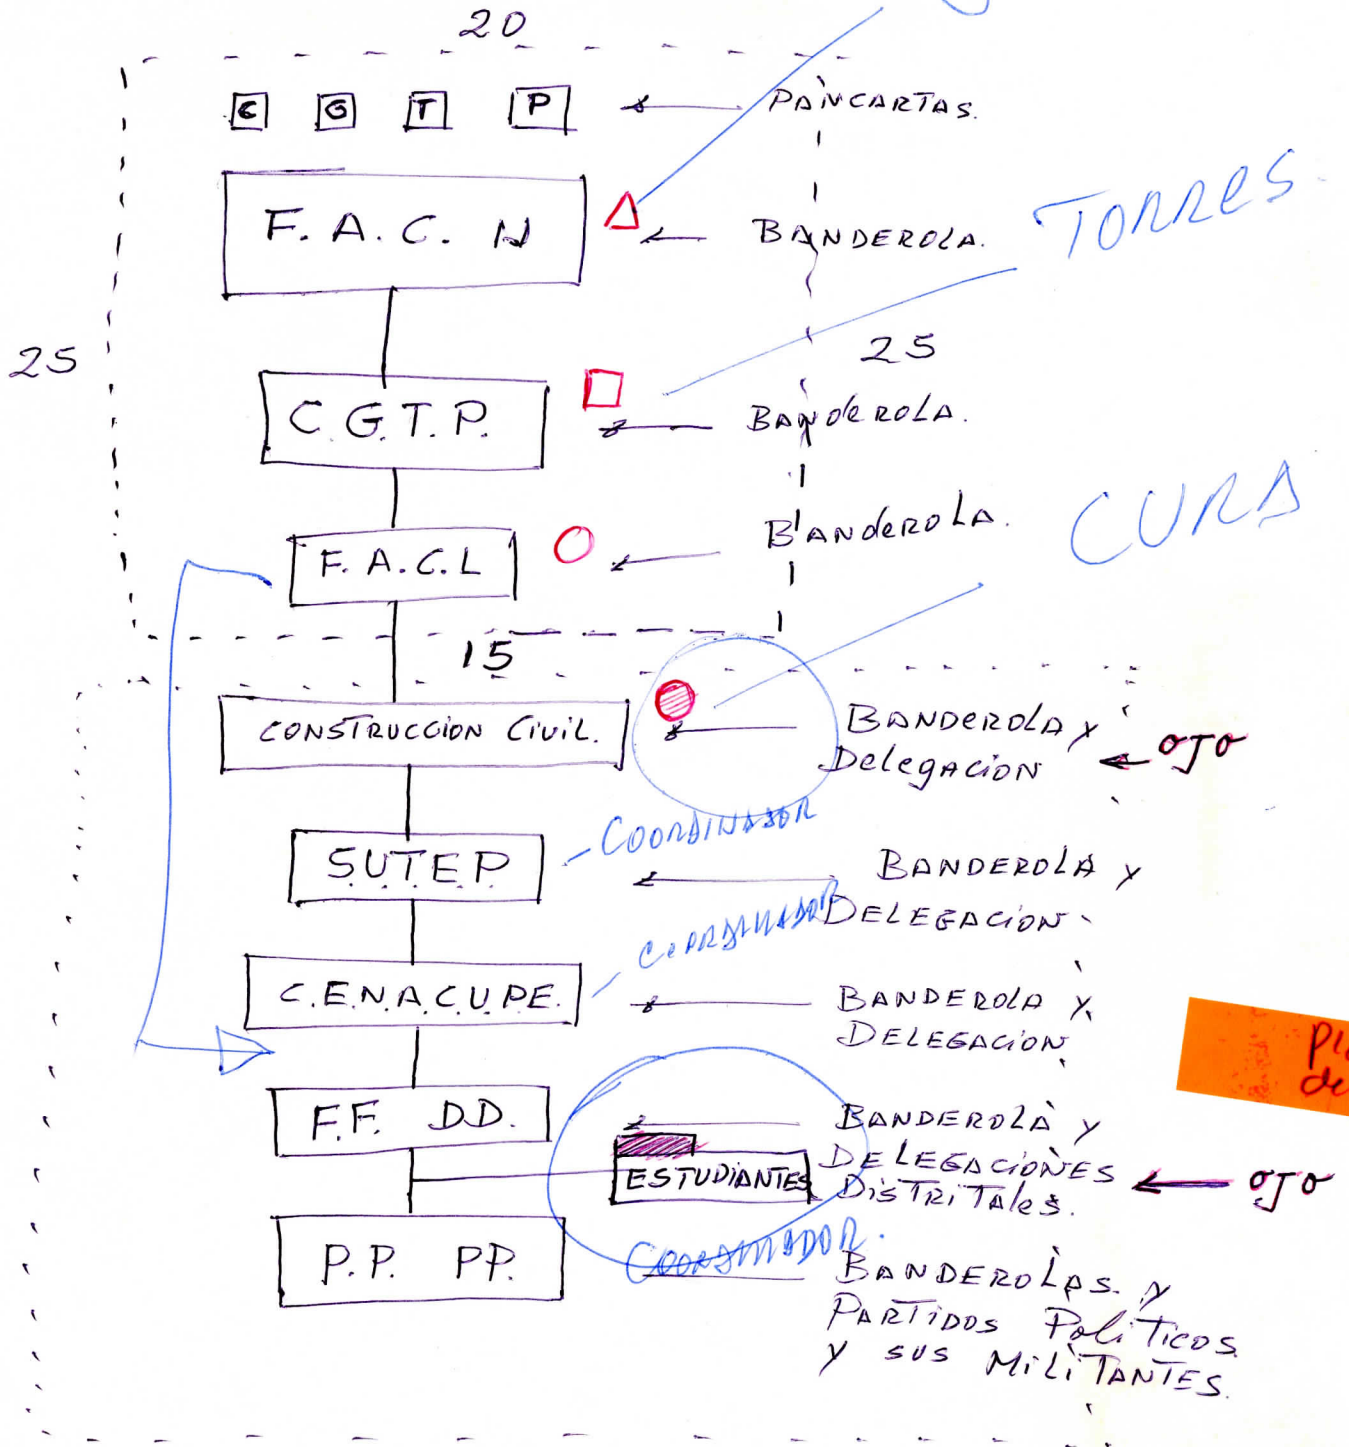 20
C G T P PANCARTAS.
F. A. C. N BANDEROLA.
TORRES.
25
25
C.G.T.P. BANDEROLA.
F. A. C. L BANDEROLA.
CURA
15
CONSTRUCCION CIVIL. BANDEROLA Y
Delegacion OJO
COORDINADOR
S.U.T.E.P. BANDEROLA Y
DELEGACION
COORDINADOR
C.E.N.A.C.U.P.E. BANDEROLA Y
DELEGACION
F.F. D.D. BANDEROLA Y
ESTUDIANTES DELEGACIONES
DISTRITALES. OJO
COORDINADOR.
P.P. PP. BANDEROLAS Y
PARTIDOS POLITICOS
Y SUS MILITANTES.
de